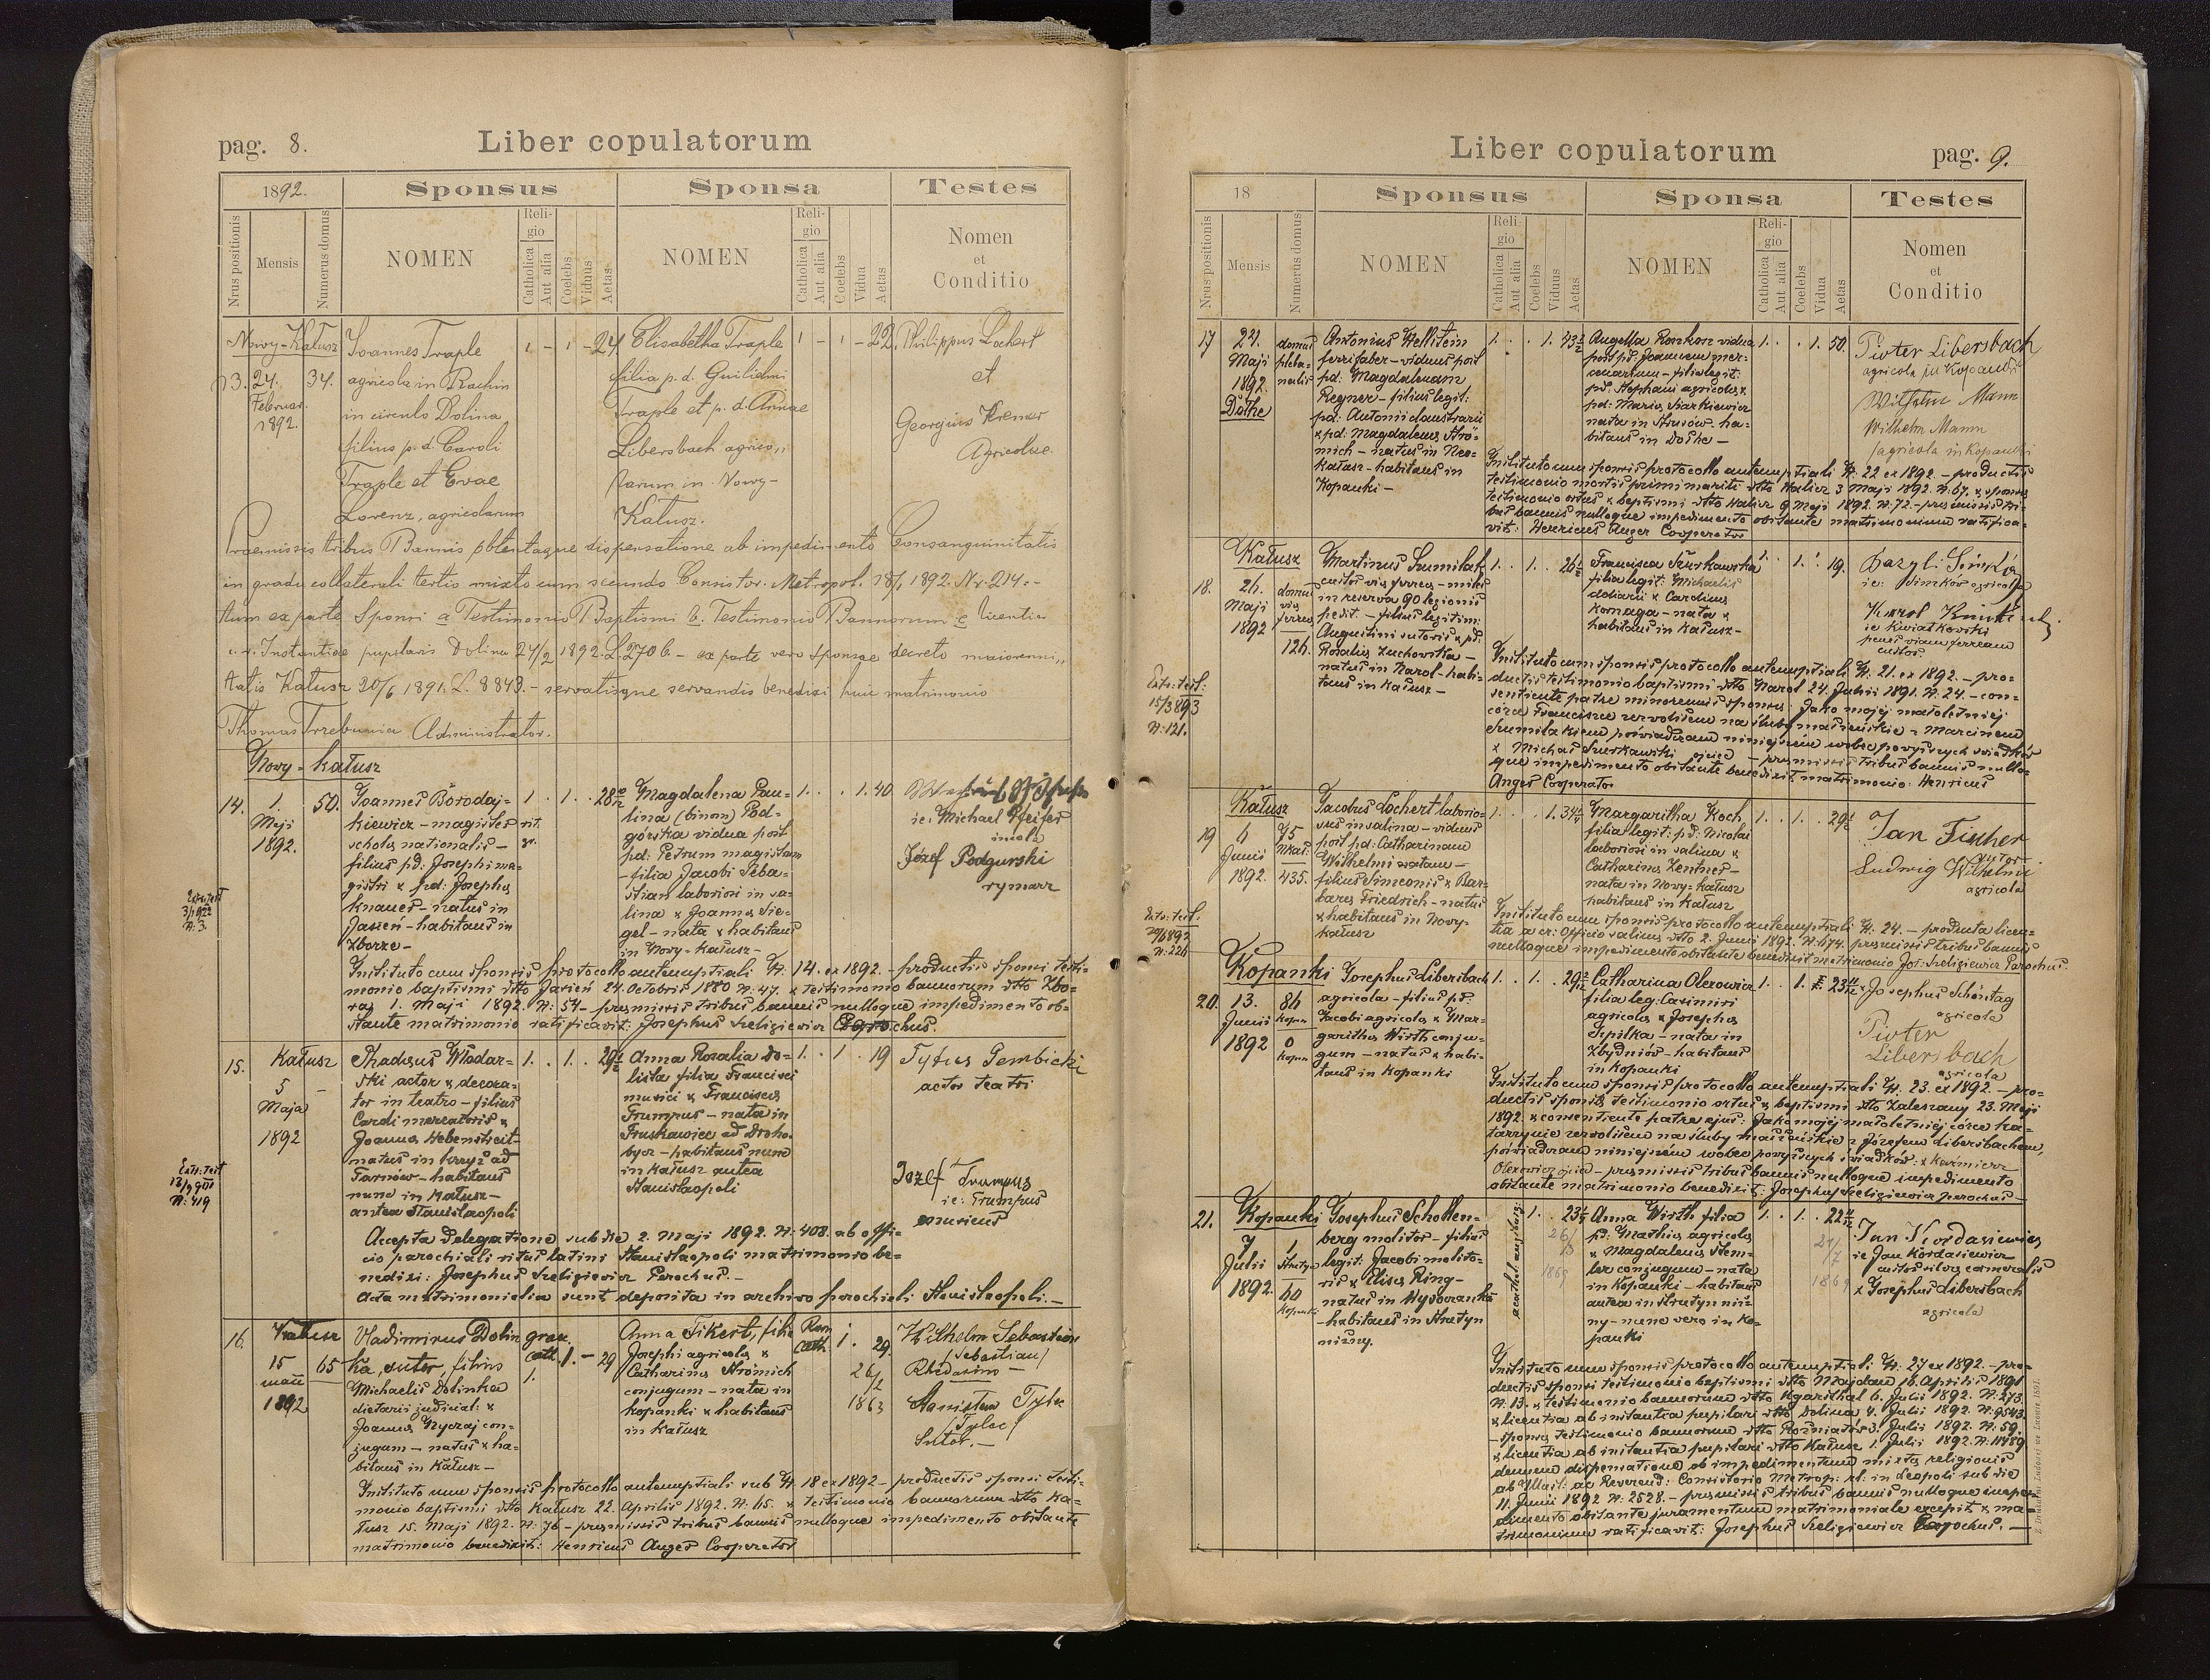 pag. 8.
Liber copulatorum
1892.
Sponsus
Sponsa
Testes
Nrus positionis
Mensis
Numerus domus
NOMEN
Religio
Catholica
Aut alia
Coelebs
Viduus
Aetas
NOMEN
Religio
Catholica
Aut alia
Coelebs
Vidua
Aetas
Nomen
et
Conditio
Nowy-Kałusz
13. 24. 34.
Februar.
1892.
Joannes Traple
agricola in Rachin
in circulo Dolina
filius p. d. Caroli
Traple et Evae
Lorenz, agricolarum
1 - 1 - 24.
Elisabetha Traple
filia p. d. Guilielmi
Traple et p. d. Annae
Libersbach agrico„
larum in Nowy-
Kałusz.
1 - 1 - 22.
Philippus Lochert
et
Georgius Kremer
Agricolae.
Praemissis tribus Bannis obtentaque dispensatione ab impedimento Consanguinitatis
in gradu collaterali tertio mixto cum secundo Consistor. Metropol. 18/1 1892. Nr. 214.-
tum ex parte Sponsi a Testimonio Baptismi b. Testimonio Bannorum c licentia
c. r. Instantiae pupilaris Dolina 24/2 1892. L. 2706. - ex parte vero sponsae decreto maiorenni„
tatis Kałusz 20/6 1891. L. 8843. - servatisque servandis benedixi huic matrimonio
Thomas Trzebunia Administrator.
Nowy-Kałusz
14. 1. 50.
Maji
1892.
Joannes Borodaj-
kiewicz - magister
scholae nationalis -
filius pd: Josephi ma-
gistri & pd: Josephae
Knauer - natus in
Jasień - habitans in
Zborze -
1 . 1 . 28
rit.
gr.
Magdalena Pau-
lina (binom) Pod-
górska vidua post
pd: Petrum magistrum
- filia Jacobi Seba-
stian laboriosi in sa-
lina & Joannae Sie-
gel - nata & habitans
in Nowy-Kałusz -
1. . . 1. 40.
ie: Michael Pfeifer
incola
Józef Podgurski
rymarz
3/1 922
N: 3.
Instituto cum sponsis protocollo antenuptiali N: 14. ex 1892. - productis sponsi testi-
monio baptismi dtto Jasień 24. Octobris 1880 N: 47. & testimonio bannorum dtto Zbo-
ra 1. Maji 1892. N: 54 - praemissis tribus bannis nulloque impedimento ob-
stante matrimonio ratificavit: Josephus Szeligiewicz Parochus.
15. Kałusz
5
Maja
1892
Thadaeus Włodar-
ski actor & decora-
tor in teatro - filius
Caroli mercatoris &
Joannae Hebenstreit-
natus in Krzyż ad
Tarnów - habitans
nunc in Kałusz -
antea Stanislaopoli
1. . 1. . 29
Anna Rosalia Do-
lista filia Francisci
musici & Franciscae
Trumpus - nata in
Truskawiec ad Droho-
bycz - habitans nunc
in Kałusz antea
Stanislaopoli
1. . 1 . 19
Tytus Gembicki
actor teatri
Józef Trumpus
ie: Trumpus
musicus
Extr: test
N: 419
Accepta delegatione sub die 2. Maji 1892. N: 408. ab offi-
cio parochiali ritus latini Stanislaopoli matrimonio be-
nedixi: Josephus Szeligiewicz Parochus. -
Acta matrimonialia sunt deposita in archivo parochiali Stanislaopoli. -
16. Kałusz
15 65
maii
1892
Vladimirus Dolin
ka, sutor, filius
Michaelis Dolinka
dietarii judicial: &
Joannae Nyczaj con-
jugum - natus & ha-
bitans in Kałusz -
graec.
cath. 1. - 29
1.
Anna Sikert, filia
Josephi agricolae &
Catharinae Strömich
conjugum - nata in
Kopanki & habitans
in Kałusz
Rom
cath. 1. 29.
26/2
1863
Wilhelm Sebastian
/Sebastian/
Stanisław Tylec
/Tylec/
Sutor. -
Instituto cum sponsis protocollo antenuptiali sub N: 18 ex 1892 - productis sponsi testi-
monio baptismi dtto Kałusz 22. Aprilis 1892. N: 65. & testimonio bannorum dtto Ka-
łusz 15. Maji 1892. N: 76 - praemissis tribus bannis nulloque impedimento obstante
matrimonio benedixit: Henricus Auger Cooperator
Liber copulatorum
pag. 9.
18
Sponsus
Sponsa
Testes
Nrus positionis
Mensis
Numerus domus
NOMEN
Religio
Catholica
Aut alia
Coelebs
Viduus
Aetas
NOMEN
Religio
Catholica
Aut alia
Coelebs
Vidua
Aetas
Nomen
et
Conditio
17 24. domus
Maji pleba-
1892. nalis
Dołhe
Antonius Hellstein
ferrifaber - viduus post
pd: Magdalenam
Regner - filius legit:
pd: Antonii claustrarii
& pd: Magdalenae Strö-
mich - natus in Neo-
Kałusz - habitans in
Kopanki -
1. . . 1. 43
Angella Konkon vidua
post pd: Joannem mer-
cenarium - filia legit:
pd: Stephani agricolae &
pd: Mariae Siarkiewicz
nata in Strusów. ha-
bitans in Dołhe -
1. . . 1. 50.
Pioter Libersbach
agricola in Kopanki
Wilhelm Mann
Wilhelm Mann
/agricola in Kopanki
Instituto cum sponsis protocollo antenuptiali N: 22 ex 1892. - productis
testimonio mortis primi mariti dtto Halicz 3 Maji 1892. N: 67. & sponsae
testimonio ortus & baptismi dtto Halicz 9 Maji 1892. N: 72. - praemissis tri-
bus bannis nulloque impedimento obstante matrimonium ratifica-
vit: Henricus Auger Cooperator
Kałusz
18. 26. domus
Maji viae
1892 ferreae
126.
Martinus Sumilak
custos viae ferreae - miles
in reserva 90 legionis
pedit. - filius legitim:
Augustini sutoris & pd:
Rosaliae Zuchowska -
natus in Narol - habi-
tans in Kałusz -
1. . 1. . 26
Francisca Szurkawska
filia legit: Michaelis
doliarii & Carolinae
Komaga - nata &
habitans in Kałusz -
1. . 1. . 19.
ie: Simków agricola
ie Kwiatkowski
penes viam ferream
custos.
Extr: test:
15/3 893
N: 121.
Instituto cum sponsis protocollo antenuptiali N: 21. ex 1892. - pro-
ductis testimonio baptismi dtto Narol 24. Julii 1891. N: 24. - con-
sentiente patre minorennis sponsae: Jako mojej małoletniej
córce Franciszce zezwoliłem na śluby małżeńskie z Marcinem
Sumilakiem poświadczam niniejszém wobec powyższych świadków
& Michał Szurkawski ojciec - praemissis tribus bannis nullo-
que impedimento obstante benedixit matrimonio: Henricus
Auger Cooperator
Kałusz
19 6 75
Junii NKał.
1892. 435.
Jacobus Lochert laborio-
sus in salina - viduus
post pd: Catharinam
Wilhelmi natam -
filius Simeonis & Bar-
barae Friedrich - natus
& habitans in Nowy-
Kałusz
1. . . 1. 34
Margaritha Koch
filia legit: pd: Nicolai
laboriosi in salina &
Catharinae Zentner -
nata in Nowy-Kałusz
habitans in Kałusz
1. . 1. . 29
Jan Fischer
sutor
Ludwig Wilhelmi
agricola
Extr: test:
29/6 892
N: 226
Instituto cum sponsis protocollo antenuptiali N: 24. - producta licen-
tia a cr: Officio salinae dtto 2. Junii 1892. N: 174. praemissis tribus bannis
nulloque impedimento obstante benedixit matrimonio Jos: Szeligiewicz Parochus.
Kopanki
20. 13. 86
Junii Kopan
1892 0
Kopan
Josephus Libersbach
agricola - filius pd.
Jacobi agricolae & Mar-
garithae Wirth conju-
gum - natus & habi-
tans in Kopanki
1. . 1. . 29
Catharina Olerowicz
filia leg: Casimiri
agricolae & Josephae
Szpilka - nata in
Zbydniów - habitans
in Kopanki
1. . 1. 23
Josephus Schöntag
agricola
Pioter
Libersbach
agricola
Instituto cum sponsis protocollo antenuptiali N: 23. ex 1892. - pro-
ductis sponsae testimonio ortus & baptismi dtto Zaleszany 23. Maji
1892. & consentiente patre ejus: Jako mojej małoletniej córce Ka-
tarzynie zezwoliłem na śluby małżeńskie z Józefem Libersbachem,
poświadczam niniejszém wobec powyższych świadków: & Kazimierz
Olerowicz ojciec - praemissis tribus bannis nulloque impedimento
obstante matrimonio benedixit: Josephus Szeligiewicz parochus -
21. Kopanki
7 1
Julii Strutyn
1892. 60
Kopanki
Josephus Schollen-
berg molitor - filius
legit: Jacobi molito-
ris & Elisae Ring -
natus in Wysoranka
- habitans in Strutyn
niżny.
1. . 23
26/3
1869
Anna Wirth filia
pd: Mathiae agricolae
& Magdalenae Stem-
ler conjugum - nata
in Kopanki - habitans
antea in Strutyn niż-
ny - nunc vero in Ko-
panki
1. . 1. . 22
21/7
1869
Jan Kordasiewicz
ie Jan Kordasiewicz
custos silvae cameralis
& Josephus Libersbach
agricola
Instituto cum sponsis protocollo antenuptiali N: 27 ex 1892. - pro-
ductis sponsi testimonio baptismi dtto Majdan 16. Aprilis 1891
N: 13. & testimonio bannorum dtto Ugarsthal 6. Julii 1892. N: 273.
& licentia ab instantia pupilari dtto Dolina 4. Julii 1892. N: 9543.
- sponsae testimonio bannorum dtto Rożniatów 3. Julii 1892. N: 59.
& licentia ab instantia pupilari dtto Kałusz 1. Julii 1892. N: 11489.
demum dispensatione ab impedimentum mixtae religionis
ab Illust: ac Reverend: Consistorio Metrop: rl: in Leopoli sub die
11. Junii 1892 N: 2528. - praemissis tribus bannis nulloque impe-
dimento obstante juramentum matrimoniale excepit & ma-
trimonium ratificavit: Josephus Szeligiewicz Parochus. -
Z Drukarni Ludowej we Lwowie 1891.